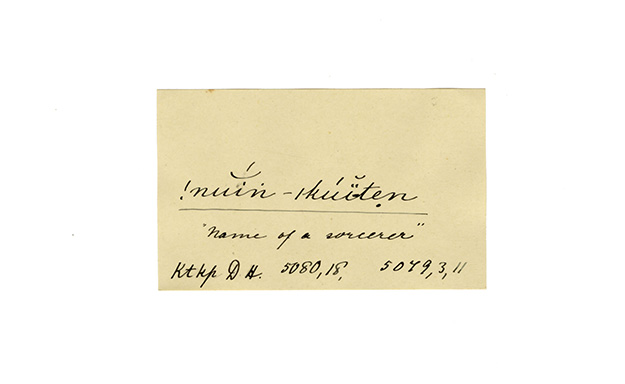 !nuĭń-|kúïtẹn
"name of a sorcerer"
Ktkp D H. 5080,18, 5079,3,11